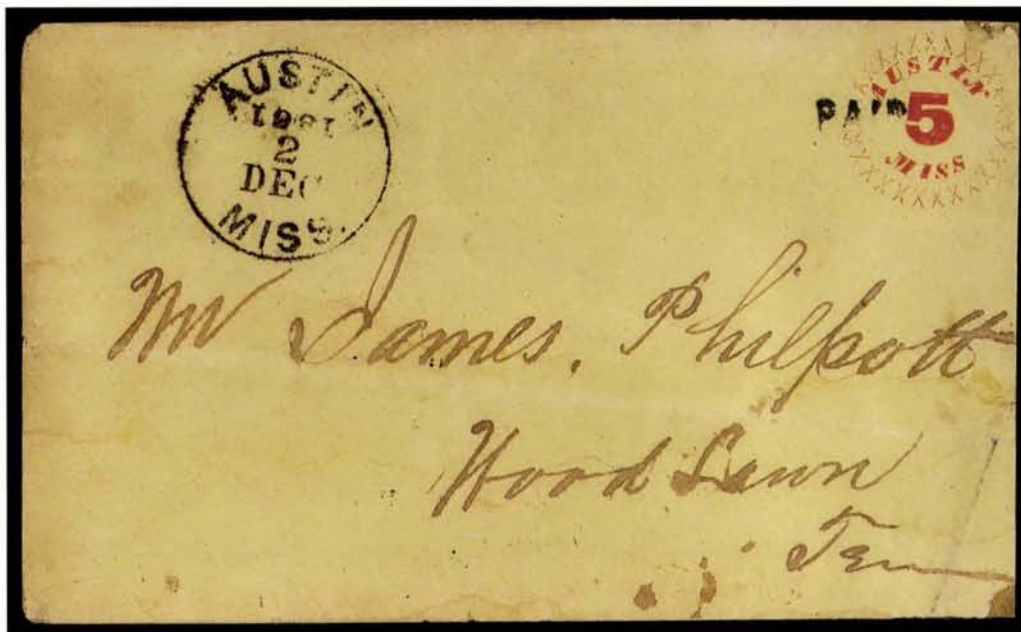 AUSTIN
1861
2
DEC
MISS.
PAID
AUSTIN
5
MISS
Mr James. Philpott
Wood Lawn
Ten